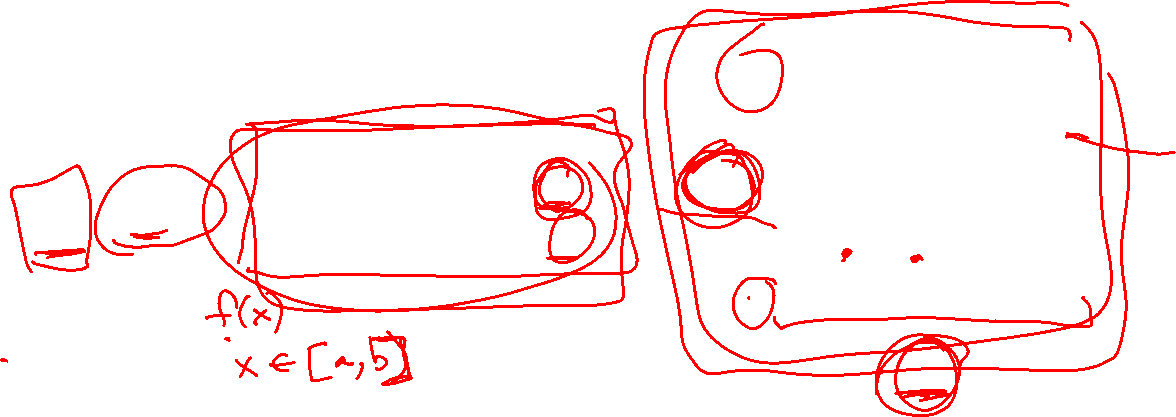 f(x)
x ∈ [a,b]